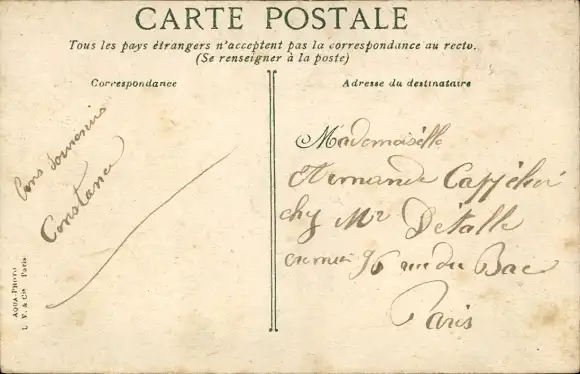 CARTE POSTALE
Tous les pays étrangers n'acceptent pas la correspondance au recto.
(Se renseigner à la poste)
Correspondance
Bons souvenirs
Constance
AQUA-PHOTO
L. V. & Cie Paris
Adresse du destinataire
Mademoiselle
chez Mr Détalle
96 rue du Bac
Paris